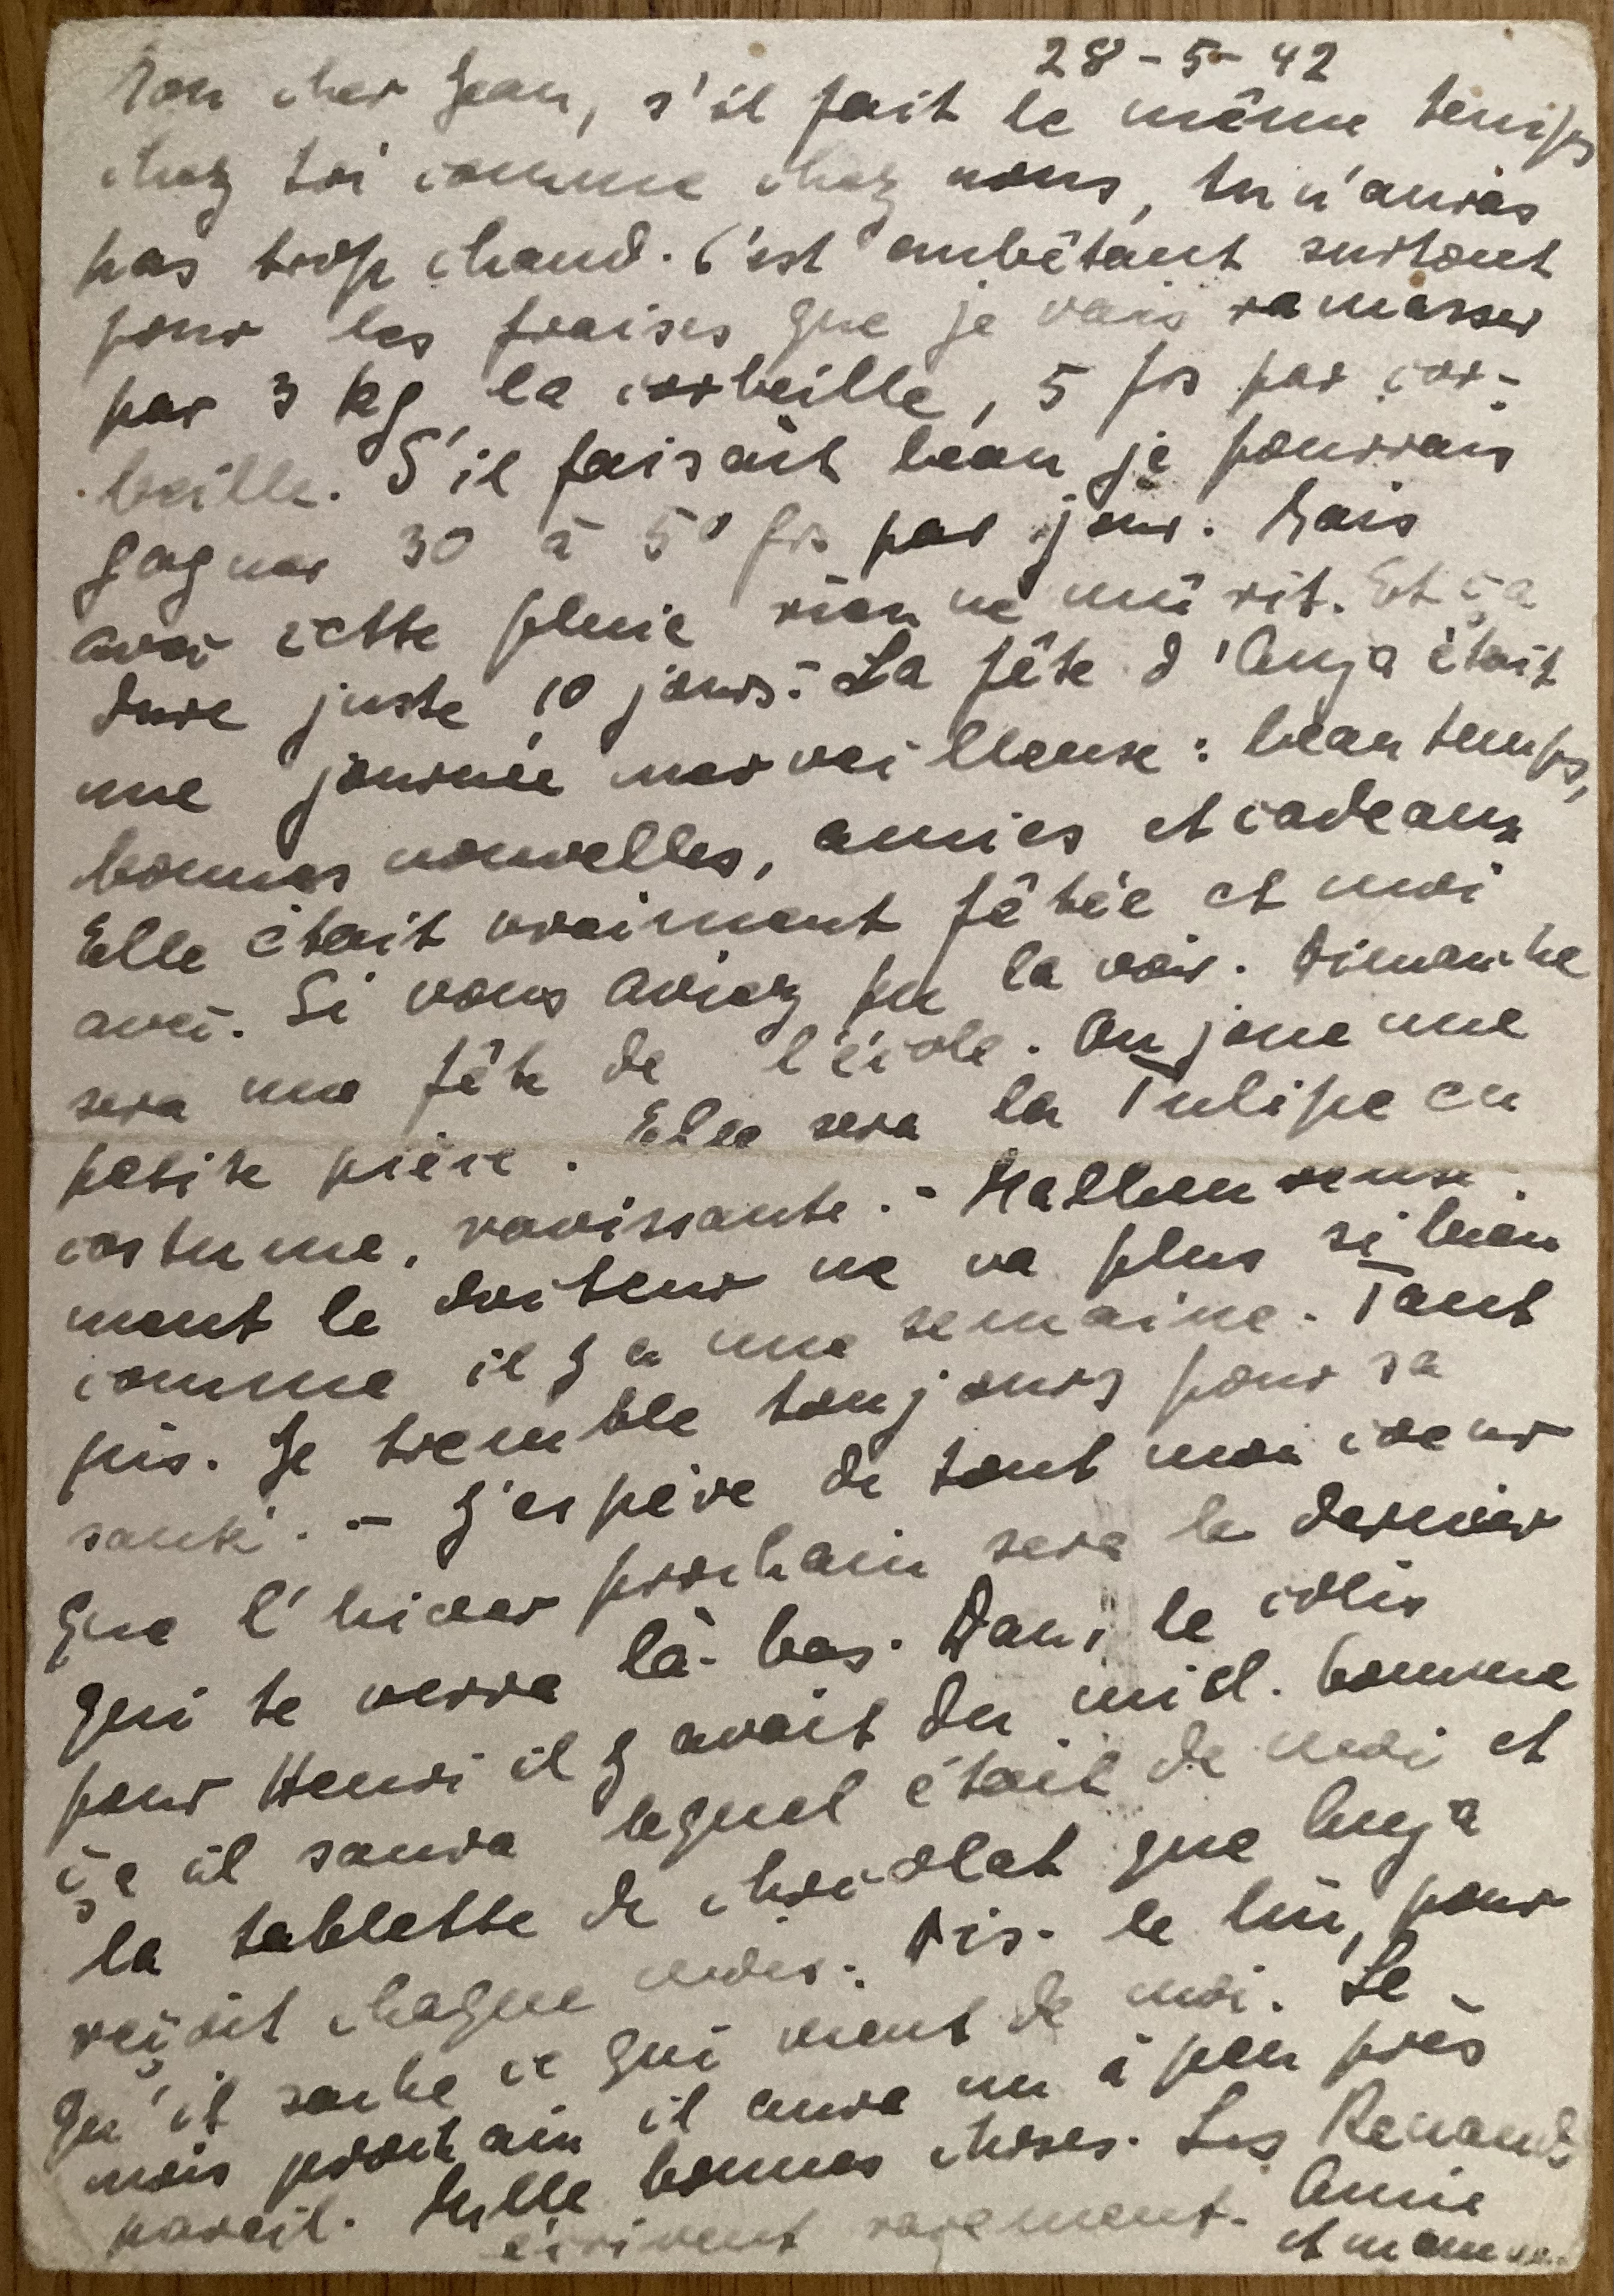 28-5-42
Mon cher Jean, s'il fait le même temps
chez toi comme chez nous, tu n'auras
pas trop chaud. C'est embêtant surtout
pour les fraises que je vais ramasser
par 3 kg la corbeille, 5 frs par cor-
beille. S'il faisait beau je pourrais
gagner 30 à 50 frs par jour. Mais
avec cette pluie rien ne mûrit. Et ça
dure juste 10 jours. - La fête d'Anja était
une journée merveilleuse : beau temps,
bonnes nouvelles, amies et cadeaux
Elle était vraiment fêtée et moi
avec. Si vous aviez pu la voir. Dimanche
sera une fête de l'école. On joue une
petite pièce. Elle sera la Tulipe en
costume, ravissante. - Malheureuse-
ment le docteur ne va plus si bien
comme il y a une semaine. Tant
pis. Je tremble toujours pour sa
santé. - J'espère de tout mon coeur
que l'hiver prochain sera le dernier
qui te verra là-bas. Dans le colis
pour Henri il y avait du miel. Comme
ça il saura lequel était de moi et
la tablette de chocolat que Anja
reçoit chaque mois. Dis-le lui, pour
qu'il sache ce qui vient de moi. Le
mois prochain il aura un à peu près
pareil. Mille bonnes choses. Les Renauds
écrivent rarement. Annie
et maman